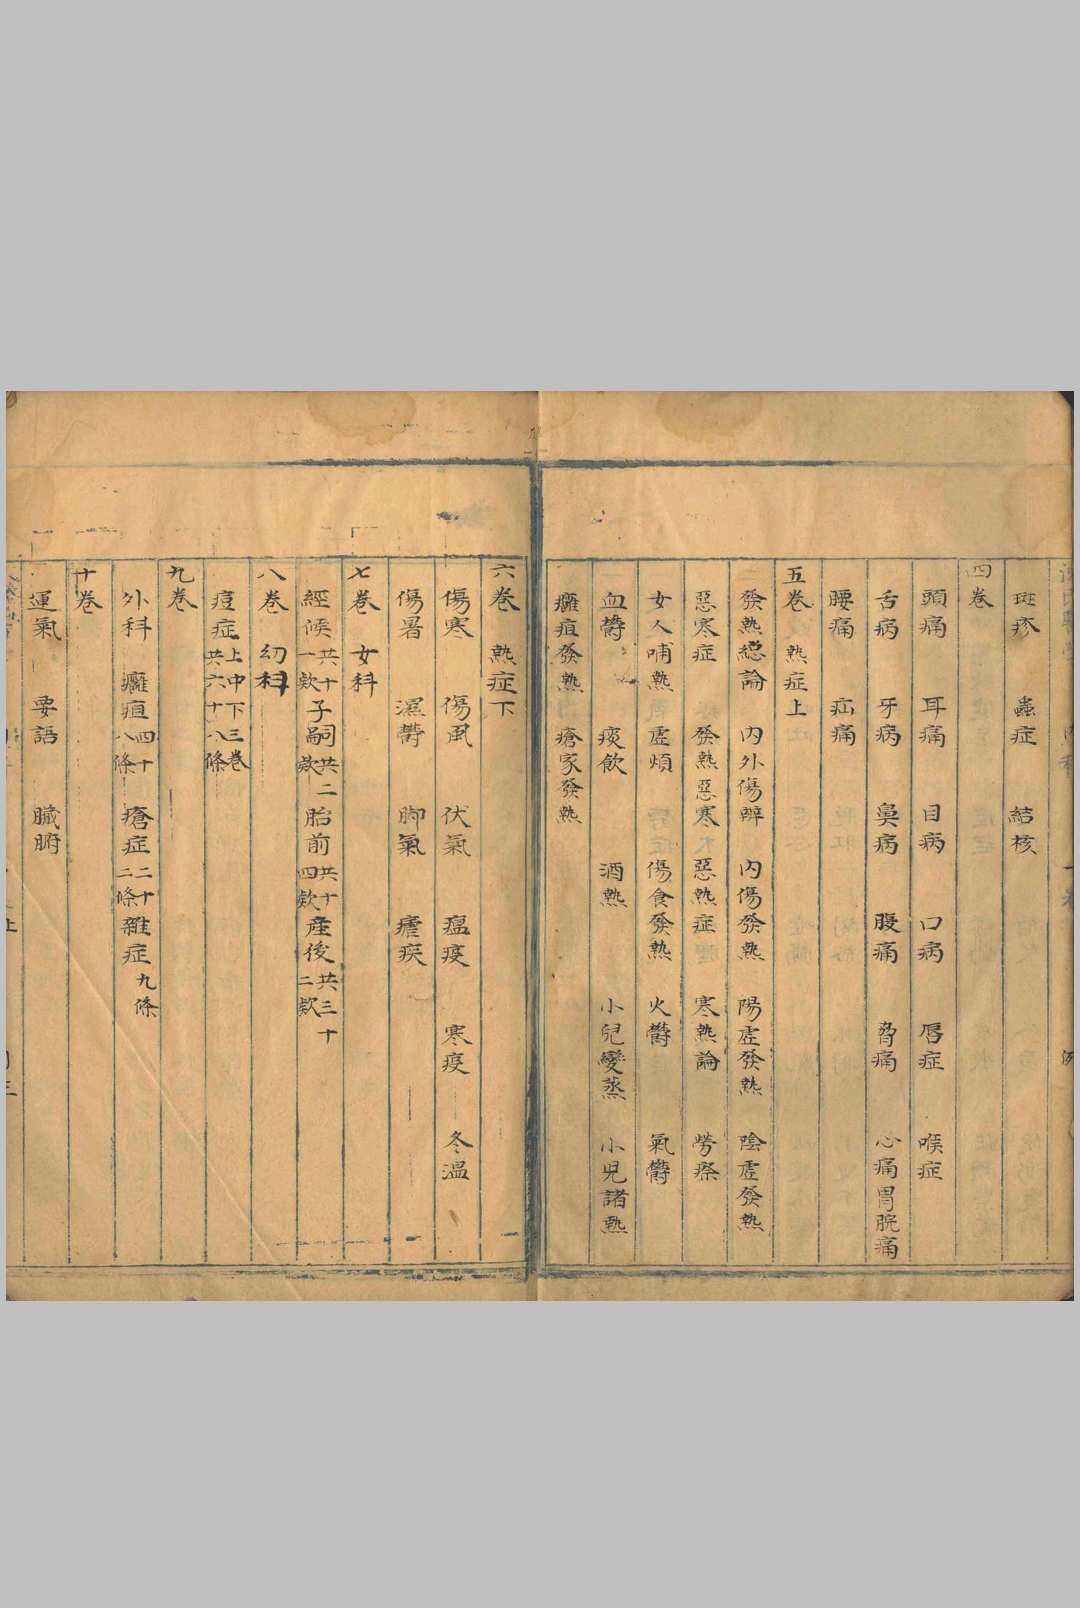 斑疹 蟲症 結核
四卷
頭痛 耳痛 目病 口病 唇症 喉症
舌病 牙病 鼻病 腹痛 脅痛 心痛胃脘痛
腰痛 疝痛
五卷 熱症上
發熱總論 內外傷辨 內傷發熱 陽虛發熱 陰虛發熱
惡寒症 發熱惡寒不惡熱症 寒熱論 勞瘵
女人哺熱 虛煩 傷食發熱 火鬱 氣鬱
血鬱 痰飲 酒熱 小兒變蒸 小兒諸熱
癰疽發熱 瘡家發熱
六卷 熱症下
傷寒 傷風 伏氣 瘟疫 寒疫 冬溫
傷暑 濕鬱 脚氣 瘧疾
七卷 女科
經候共十一欵子嗣共二欵胎前共十四欵產後共三十二欵
八卷 幼科
痘症上中下三卷共六十八條
九卷
外科 癰疽四十八條 瘡症二十二條雜症九條
十卷
運氣 要語 臟腑